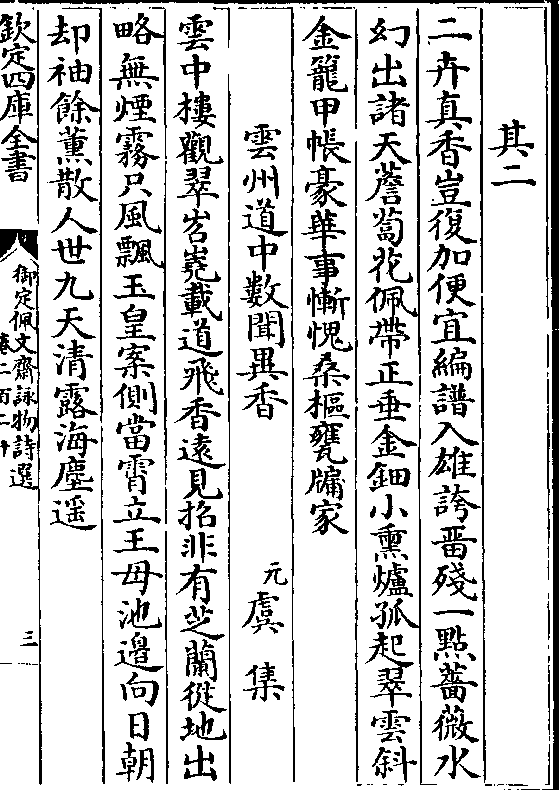 其二
二卉真香豈復加便宜編譜入雄誇畱殘一點薔薇水
幻出諸天薝蔔花佩帶正垂金鈿小熏爐孤起翠雲斜
金籠甲帳豪華事慚愧桑樞甕牖家
雲州道中数聞異香 元虞集
雲中樓觀翠岧嶤載道飛香遠見招非有芝蘭從地出
略無煙霧只風飄玉皇案側當霄立王母池邉向日朝
却袖餘薰散人世九天清露海塵遥
欽定四庫全書 御定佩文齋詠物詩選 卷二百二十 三